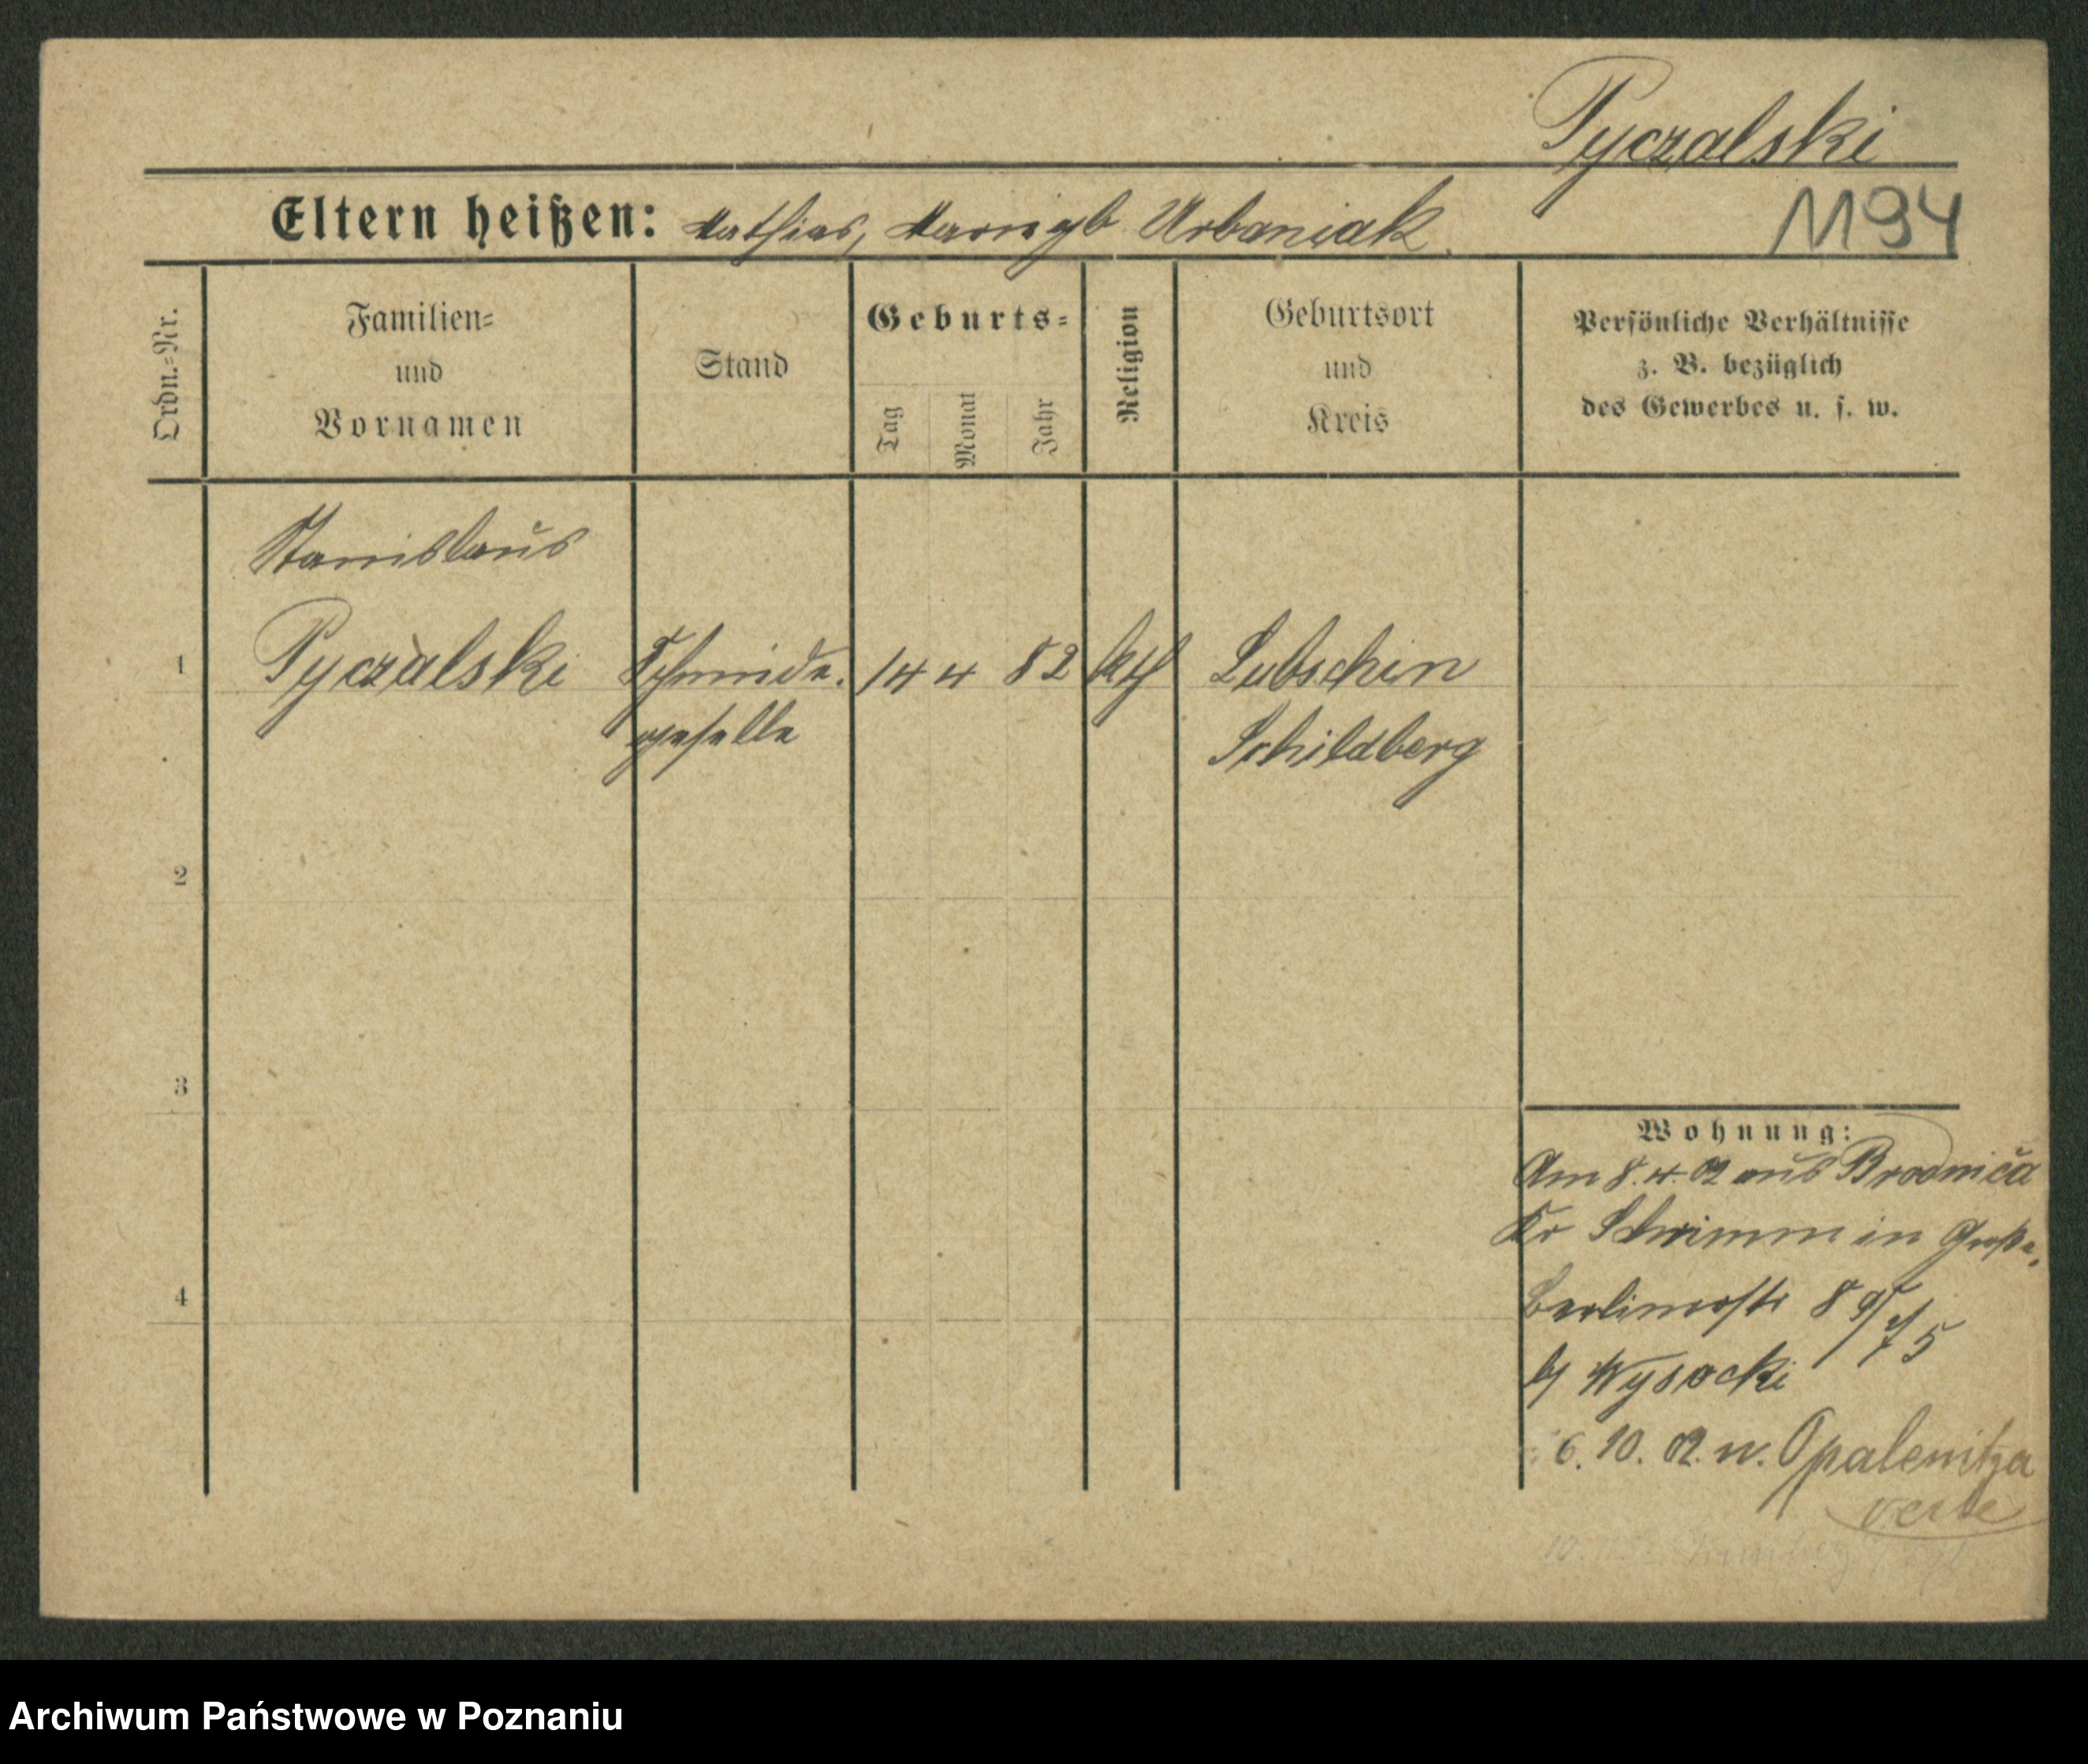 Pyczalski
Eltern heißen: Mathias, Maria gb Urbaniak
1194
Ordn.=Nr.
Familien=
und
Vornamen
Stand
Geburts=
Tag
Monat
Jahr
Religion
Geburtsort
und
Kreis
Persönliche Verhältnisse
z. B. bezüglich
des Gewerbes u. s. w.
Stanislaus
1 Pyczalski Schmiede. 14 4 82 kth Lubschin
geselle Schildberg
2
3
4
Wohnung:
Am 8.4.02 aus Brodnica
Kr Schrimm in Große
Berlinerstr 89
b/ Wysocki
6. 10. 02. n. Opalenitza